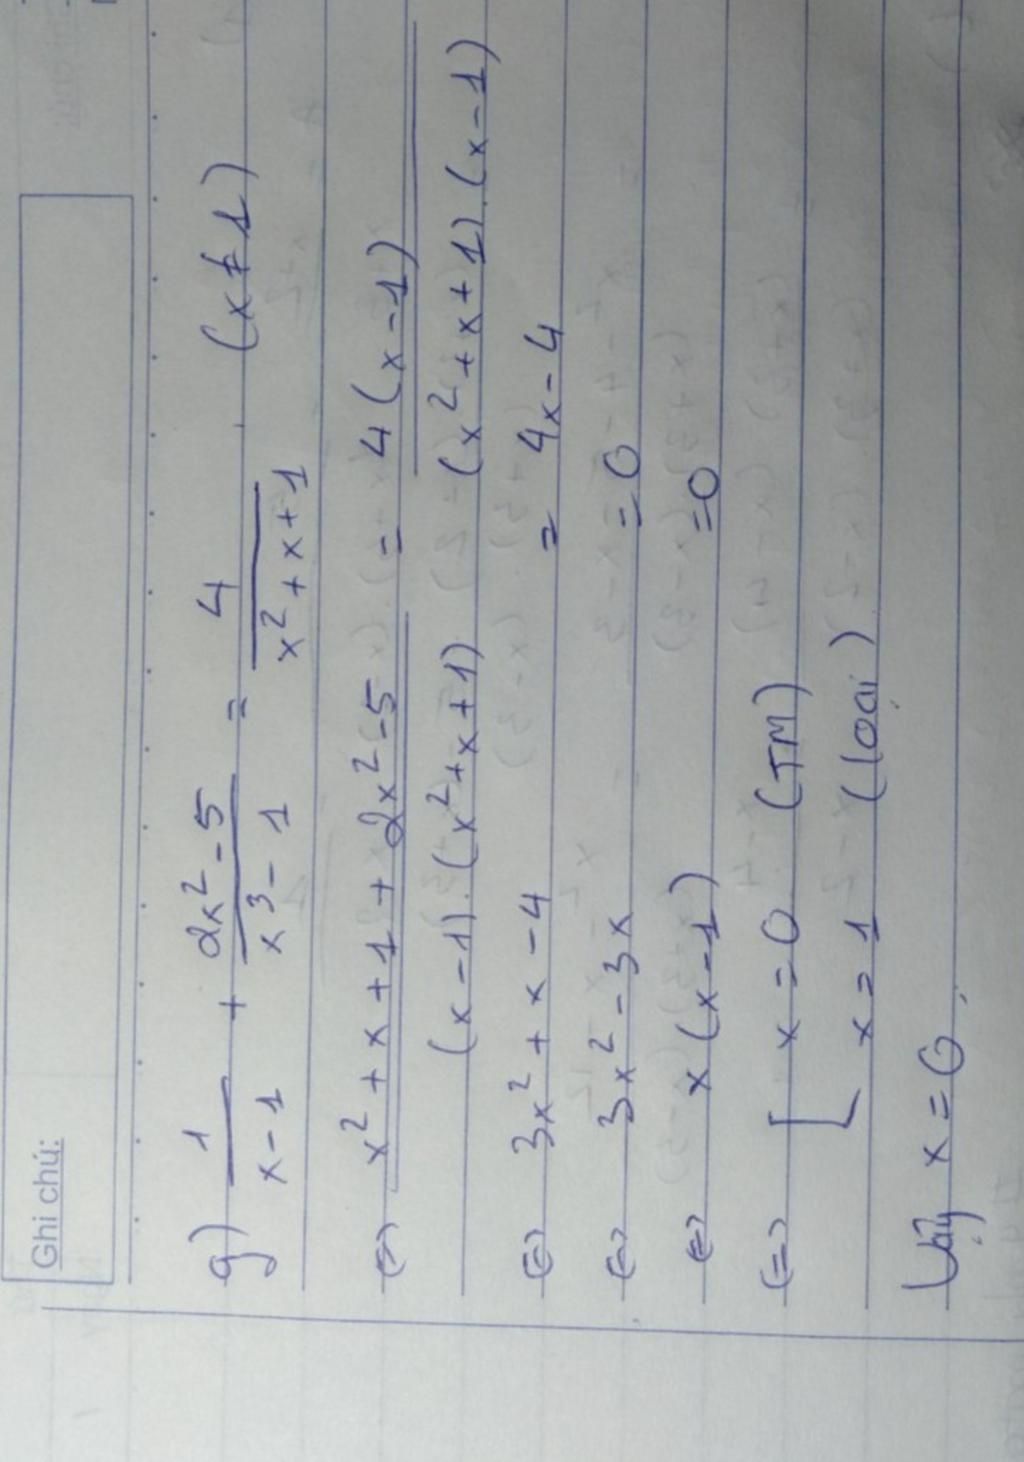 Ghi chú:
g) 1/(x-1) + (2x²-5)/(x³-1) = 4/(x²+x+1) (x≠1)
(=) (x²+x+1+2x²-5)/((x-1).(x²+x+1)) = 4(x-1)/((x²+x+1).(x-1))
(=) 3x²+x-4 = 4x-4
(=) 3x²-3x =0
(=) x(x-1) =0
(=) [ x=0 (TM)
x=1 (loại)
Vậy x=0.